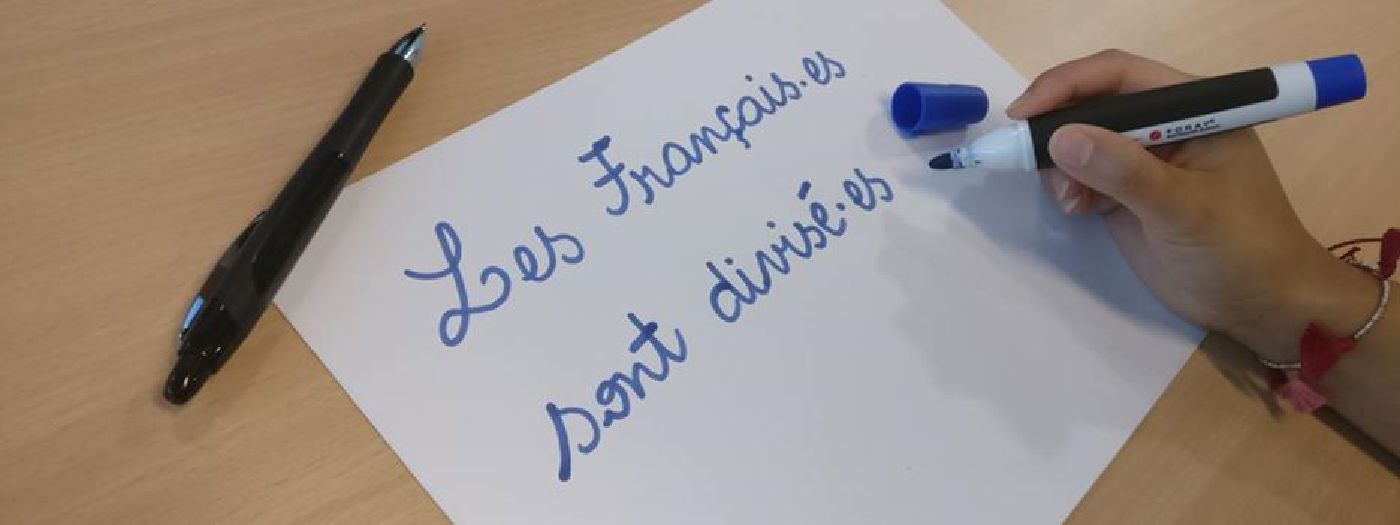 Les Français·es
sont divisé·es
FORAY